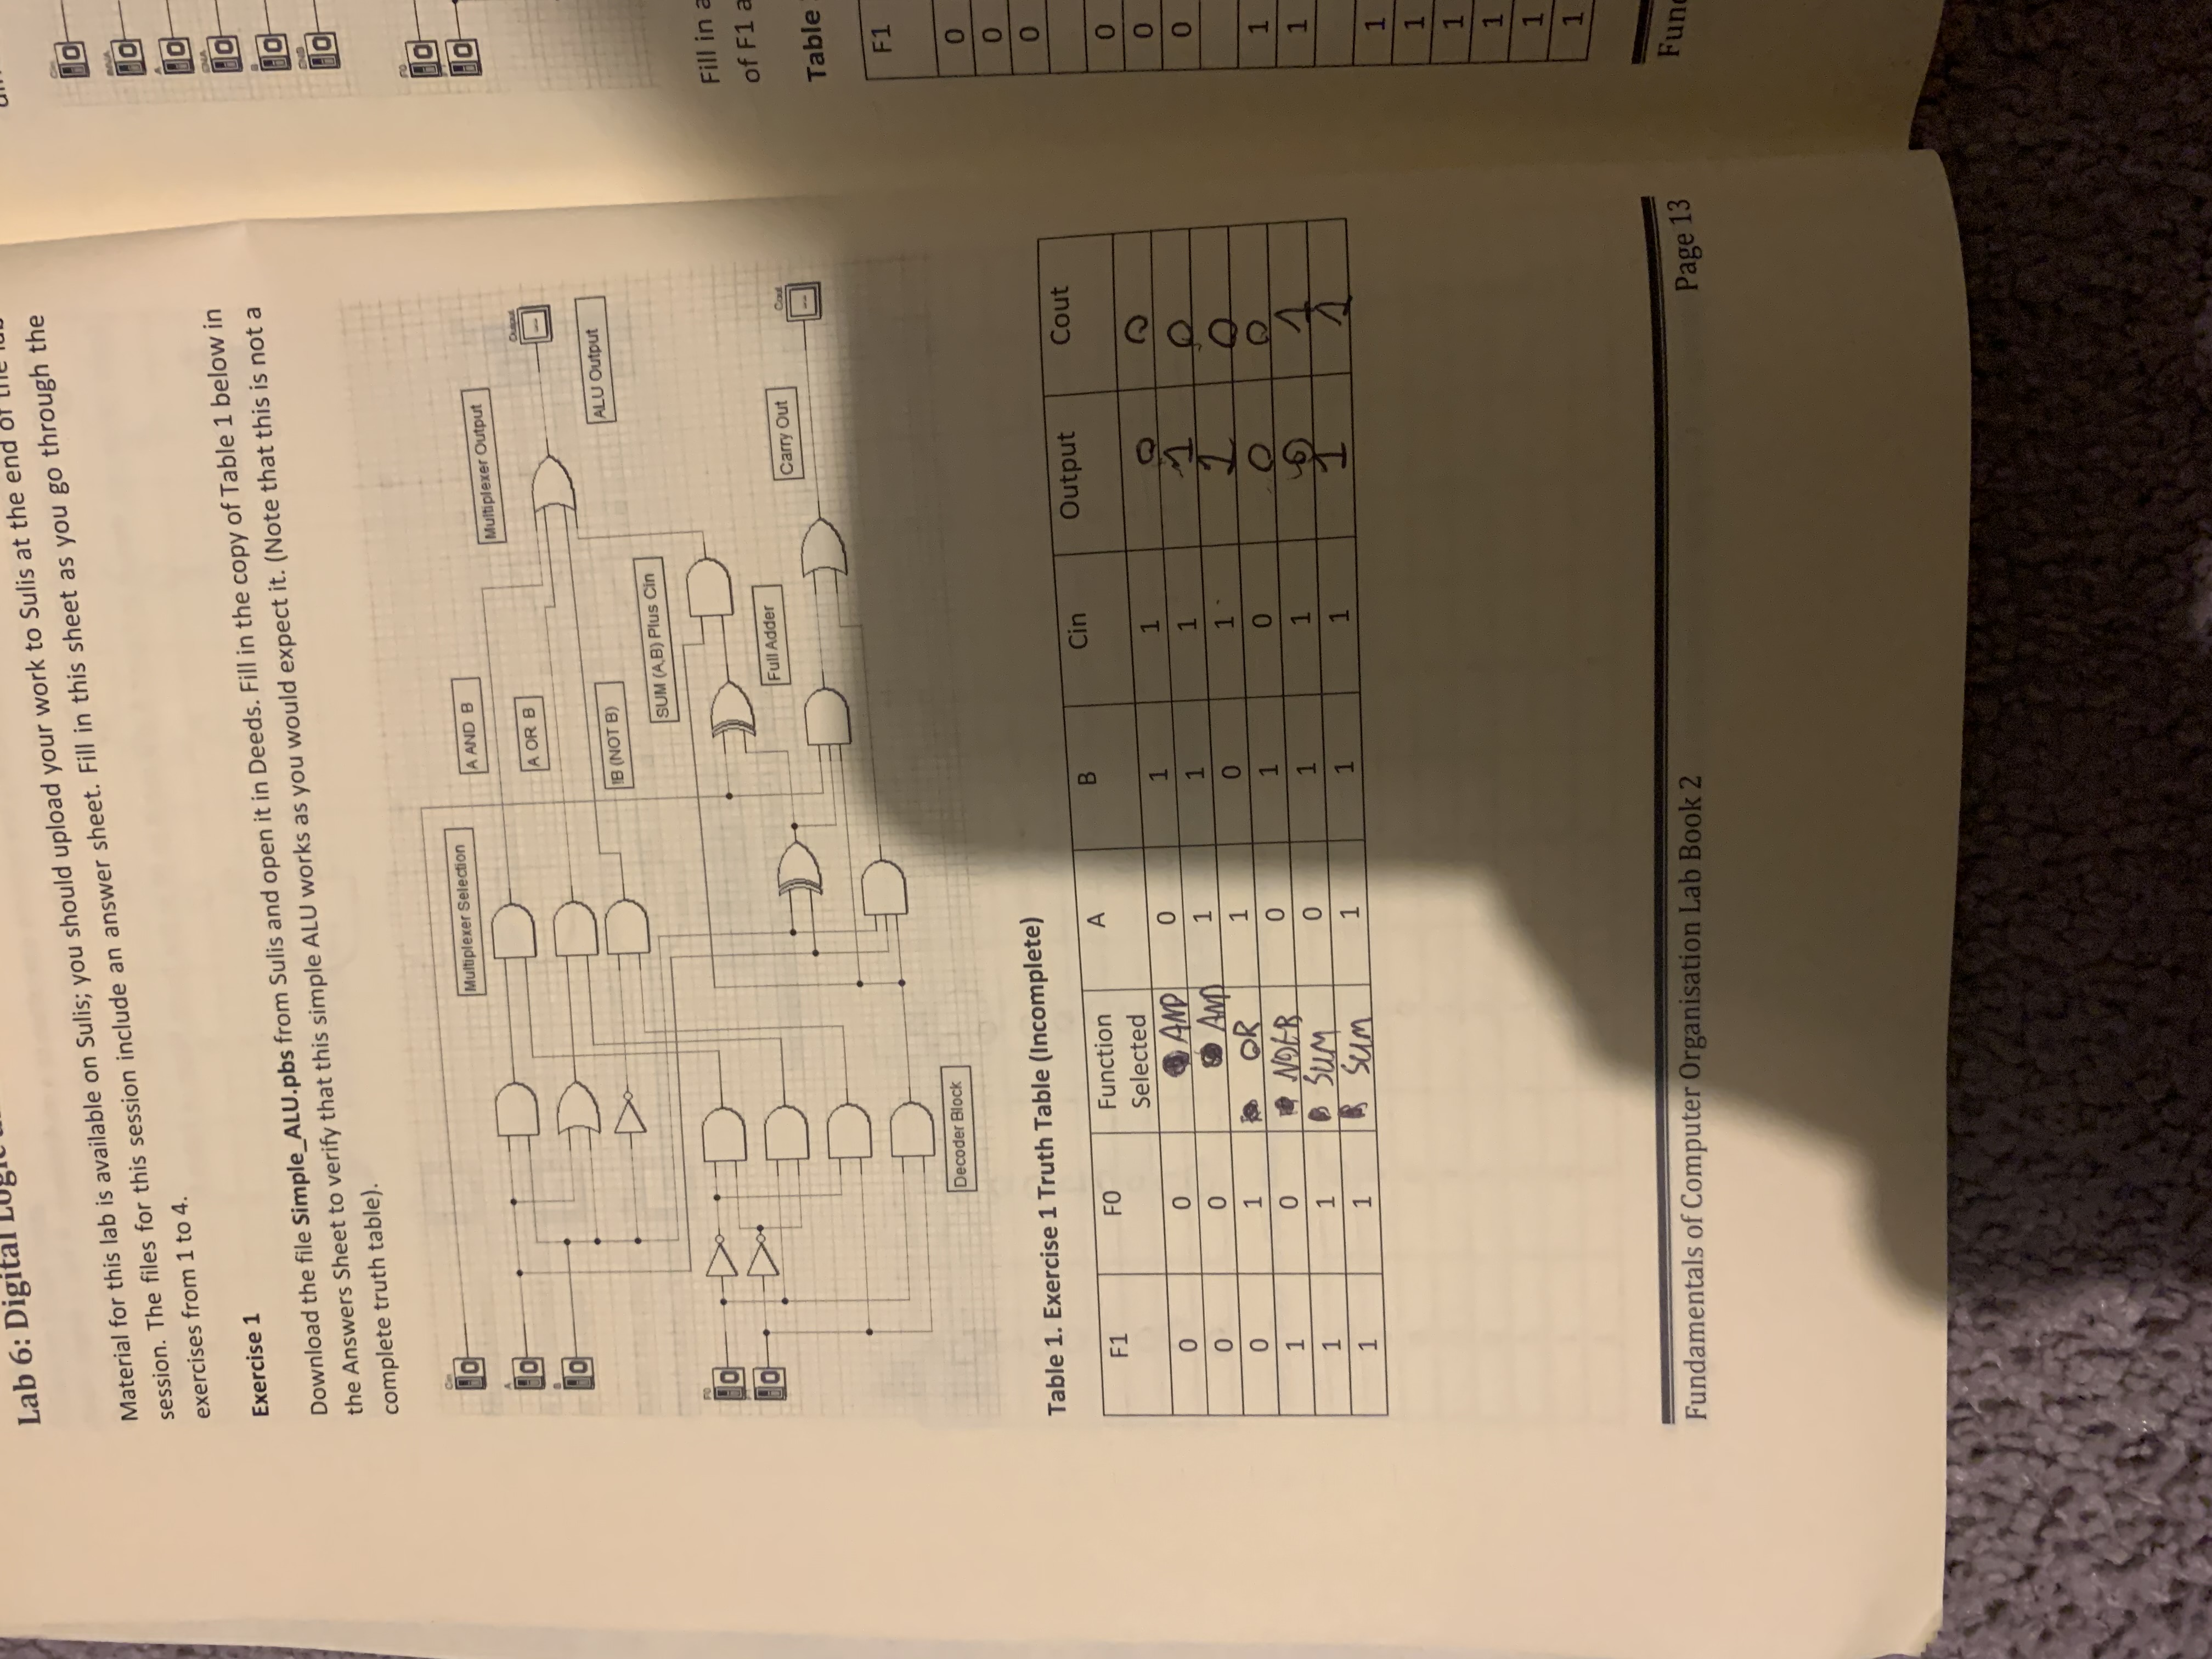 Lab 6: Digital Logic
Material for this lab is available on Sulis; you should upload your work to Sulis at the end of the lab
session. The files for this session include an answer sheet. Fill in this sheet as you go through the
exercises from 1 to 4.
Exercise 1
Download the file Simple_ALU.pbs from Sulis and open it in Deeds. Fill in the copy of Table 1 below in
the Answers Sheet to verify that this simple ALU works as you would expect it. (Note that this is not a
complete truth table).
Cin
0
A
0
B
0
Multiplexer Selection
A AND B
A OR B
!B (NOT B)
SUM (A,B) Plus Cin
Multiplexer Output
Output
--
ALU Output
F0
0
0
Full Adder
Carry Out
Cout
--
Decoder Block
Table 1. Exercise 1 Truth Table (Incomplete)
F1 F0 Function Selected A B Cin Output Cout
0 0 AND 0 1 1 0 0
0 0 AND 1 1 1 1 0
0 1 OR 1 0 1 1 0
1 0 NOtB 0 1 0 0 0
1 1 SUM 0 1 1 0 1
1 1 SUM 1 1 1 1 1
Fundamentals of Computer Organisation Lab Book 2 Page 13
Cin
0
INVA
0
A
0
ENA
0
B
0
ENB
0
F0
0
0
Fill in a
of F1 a
Table
F1
0
0
0
0
0
0
1
1
1
1
1
1
1
1